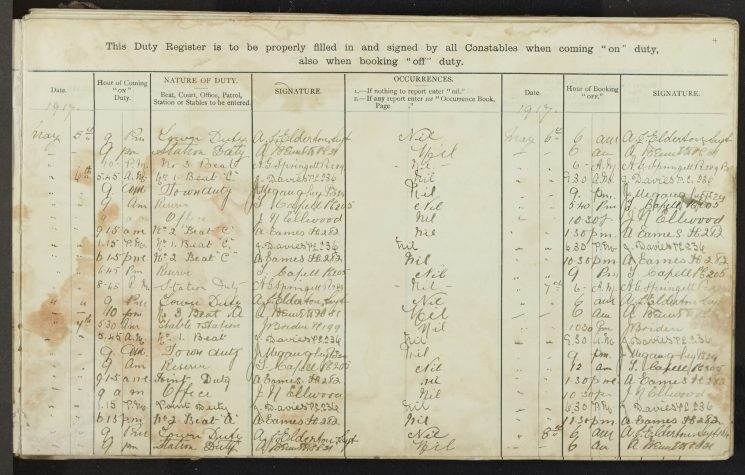 4
This Duty Register is to be properly filled in and signed by all Constables when coming "on" duty,
also when booking "off" duty.
Date. Hour of Coming "ON" Duty. NATURE OF DUTY. Beat, Court, Office, Patrol, Station or Stables to be entered. SIGNATURE OCCURRENCES. 1.—If nothing to report enter "nil." 2.—If any report enter see "Occurrence Book, Page ? Date. Hour of Booking "OFF." SIGNATURE.
1917. 1917.
May 5th 9 Pm Town Duty A J Elderton Supt Nil May 6th 6 am A J Elderton Supt
9 pm Station Duty Nil 6 am
10 P.M. No 3 Beat A G Springett Nil 6 A.M. A G Springett
6th 5.45 A.M. No 1. Beat C J. Davies P.C. 236 Nil 9.30 A.M. J. Davies P.C. 236
9 am Town duty Nil 9 pm
9 am Reserve T Capell Pc 205 Nil 5 40 Pm T Capell Pc 205
9 am Office J N Ellwood Nil 10.30 J N Ellwood
9.15 am No 2 Beat "C" A Eames Pc 282 Nil 1.30 pm A Eames Pc 282
1.15 P.M. No 1. Beat "C" J. Davies P.C. 236 Nil 6.30 P.M. J. Davies P.C. 236
6.15 pm No 2 Beat "C" A Eames Pc 282 Nil 10.30 pm A Eames Pc 282
6.45 Pm Reserve T Capell Pc 205 Nil 9 Pm T Capell Pc 205
8.45 P.M. Station Duty A G Springett Nil 7th 6 A.M. A G Springett
9 Pm Town Duty A J Elderton Supt Nil 6 am A J Elderton Supt
10 pm No 3 Beat A Nil 6 am
7th 5.30 am Stable & Station J Borden Pc 199 Nil 10.30 pm J Borden
5.45 A.M. No 1. Beat J. Davies P.C. 236 Nil 9.30 A.M. J. Davies P.C. 236
9 am Town duty Nil 9 pm
9 am Reserve T Capell Pc 205 Nil 12 am T Capell Pc 205
9.15 am Point Duty A Eames Pc 282 nil 1.30 pm A Eames Pc 282
9 am Office J N Ellwood Nil 10.30 pm J N Ellwood
1.15 P.M. Point Duty J. Davies P.C. 236 Nil 6.30 P.M. J. Davies P.C. 236
6.15 pm No 2 Beat "A" A Eames Pc 282 Nil 11.30 pm A Eames Pc 282
9 Pm Town Duty A J Elderton Supt Nil 8th 6 am A J Elderton Supt
9 pm Station Duty Nil 6 am